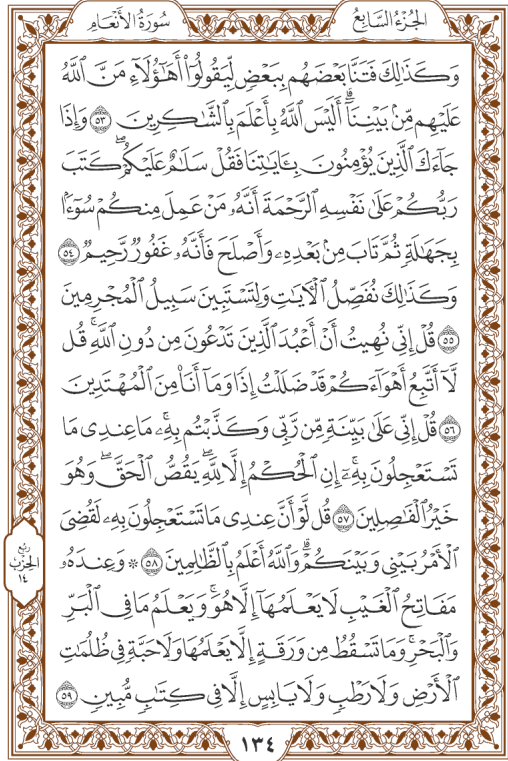 الجُزْءُ السَّابِعُ
سُورَةُ الأَنْعَامِ
وَكَذَٰلِكَ فَتَنَّا بَعْضَهُم بِبَعْضٍ لِّيَقُولُوٓا۟ أَهَٰٓؤُلَآءِ مَنَّ ٱللَّهُ
عَلَيْهِم مِّنۢ بَيْنِنَآ ۗ أَلَيْسَ ٱللَّهُ بِأَعْلَمَ بِٱلشَّٰكِرِينَ ٥٣ وَإِذَا
جَآءَكَ ٱلَّذِينَ يُؤْمِنُونَ بِـَٔايَٰتِنَا فَقُلْ سَلَٰمٌ عَلَيْكُمْ ۖ كَتَبَ
رَبُّكُمْ عَلَىٰ نَفْسِهِ ٱلرَّحْمَةَ أَنَّهُۥ مَنْ عَمِلَ مِنكُمْ سُوٓءًۢا
بِجَهَٰلَةٍ ثُمَّ تَابَ مِنۢ بَعْدِهِۦ وَأَصْلَحَ فَأَنَّهُۥ غَفُورٌ رَّحِيمٌ ٥٤
وَكَذَٰلِكَ نُفَصِّلُ ٱلْءَايَٰتِ وَلِتَسْتَبِينَ سَبِيلُ ٱلْمُجْرِمِينَ
٥٥ قُلْ إِنِّى نُهِيتُ أَنْ أَعْبُدَ ٱلَّذِينَ تَدْعُونَ مِن دُونِ ٱللَّهِ ۚ قُل
لَّآ أَتَّبِعُ أَهْوَآءَكُمْ ۙ قَدْ ضَلَلْتُ إِذًا وَمَآ أَنَا۠ مِنَ ٱلْمُهْتَدِينَ
٥٦ قُلْ إِنِّى عَلَىٰ بَيِّنَةٍ مِّن رَّبِّى وَكَذَّبْتُم بِهِۦ ۚ مَا عِندِى مَا
تَسْتَعْجِلُونَ بِهِۦٓ ۚ إِنِ ٱلْحُكْمُ إِلَّا لِلَّهِ ۖ يَقُصُّ ٱلْحَقَّ ۖ وَهُوَ
خَيْرُ ٱلْفَٰصِلِينَ ٥٧ قُل لَّوْ أَنَّ عِندِى مَا تَسْتَعْجِلُونَ بِهِۦ لَقُضِىَ
ٱلْأَمْرُ بَيْنِى وَبَيْنَكُمْ ۗ وَٱللَّهُ أَعْلَمُ بِٱلظَّٰلِمِينَ ٥٨ ۞ وَعِندَهُۥ
مَفَاتِحُ ٱلْغَيْبِ لَا يَعْلَمُهَآ إِلَّا هُوَ ۚ وَيَعْلَمُ مَا فِى ٱلْبَرِّ
وَٱلْبَحْرِ ۚ وَمَا تَسْقُطُ مِن وَرَقَةٍ إِلَّا يَعْلَمُهَا وَلَا حَبَّةٍ فِى ظُلُمَٰتِ
ٱلْأَرْضِ وَلَا رَطْبٍ وَلَا يَابِسٍ إِلَّا فِى كِتَٰبٍ مُّبِينٍ ٥٩
ربع
الحزب
١٤
١٣٤